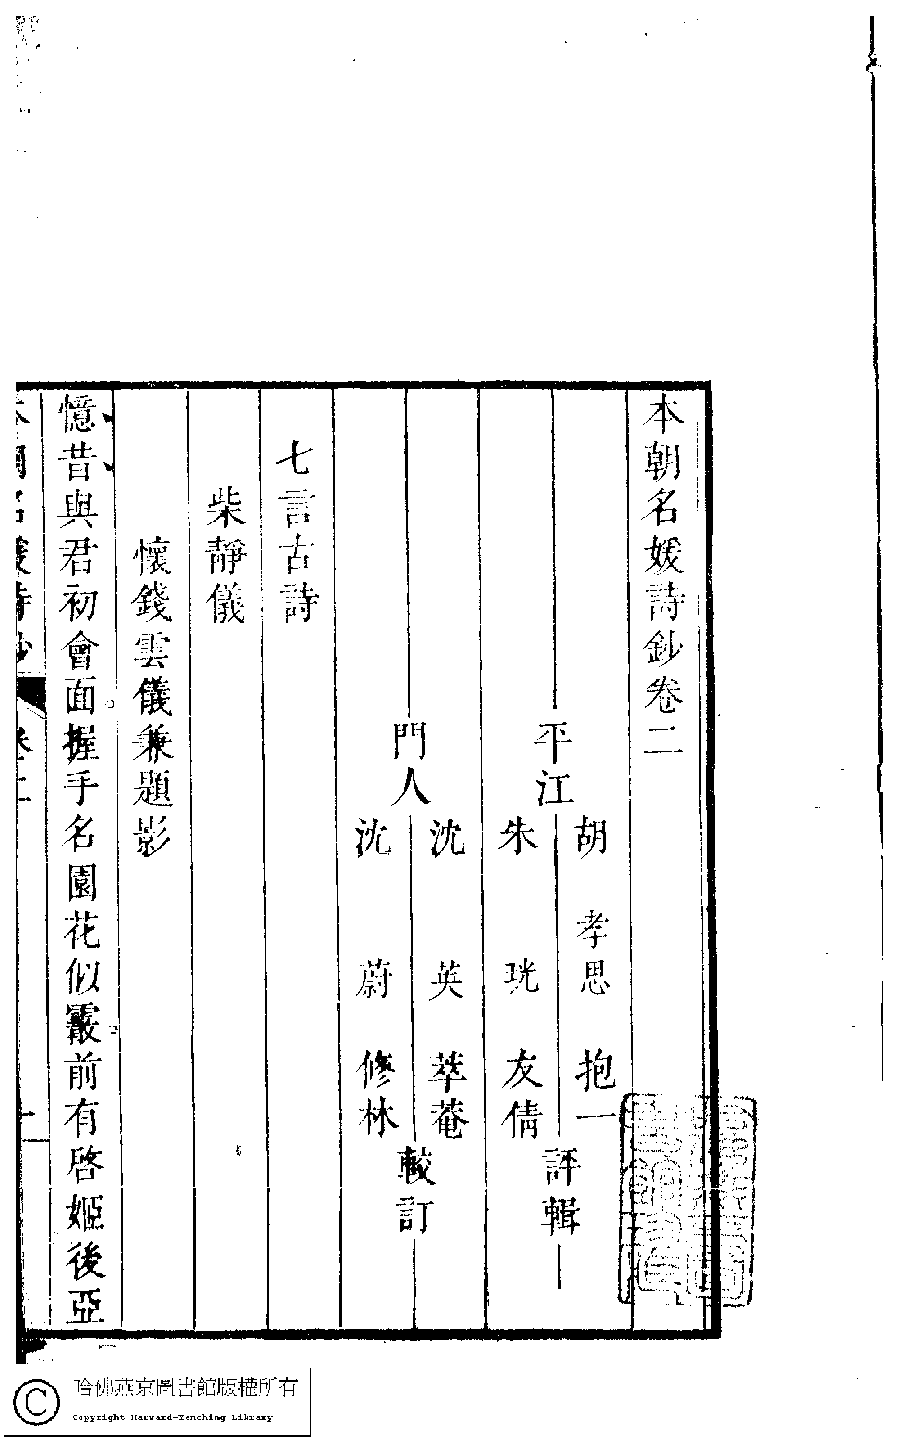 本朝名媛詩鈔卷二
平江
胡 孝思 抱一
朱 珖 友倩
評輯
門人
沈 英 萃菴
沈 蔚 修林
較訂
七言古詩
柴靜儀
懷錢雲儀兼題影
憶昔與君初會面握手名園花似霰前有啓姬後亞
本朝名媛詩鈔 卷二 一
哈佛燕京圖書館版權所有
Copyright Harvard-Yenching Library